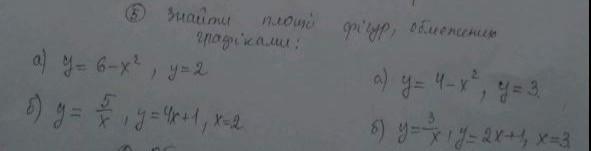 ⑤ Знайти площі фігур, обмежених
графіками:
а) y = 6 - x², y = 2
б) y = 5/x, y = 4x+1, x = 2
а) y = 4 - x², y = 3.
б) y = 3/x, y = 2x+1, x = 3.